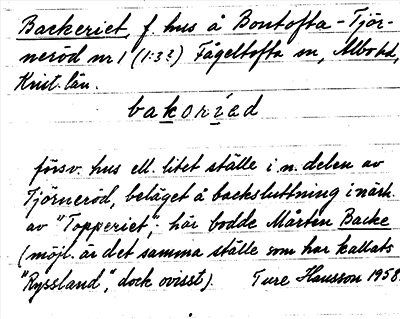 Backeriet, f. hus å Bontofta-Tjör-
neröd nr 1 (1:32) Fågeltofta sn, Albo hd,
Krist. län.
bakoriad
försv. hus ell. litet ställe i n. delen av
Tjörneröd, beläget å backsluttning i närh.
av "Topperiet"; här bodde Mårten Backe
(möjl. är det samma ställe som har kallats
"Ryssland", dock ovisst). Ture Hansson 1958.